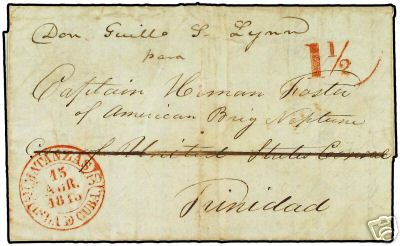 Don Guillo S. Lynn
para
1 1/2
Captain Herman Foster
of American Brig Neptune
care of United States Consul
Trinidad
MATANZAS
15
ABR.
ISLA DE CUBA